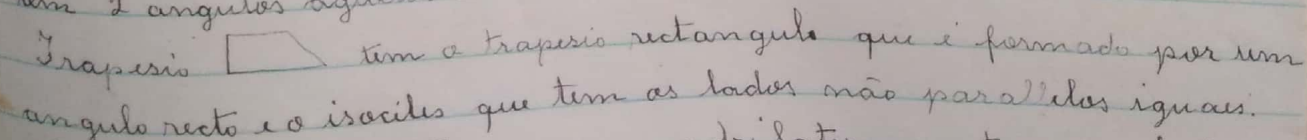 2 angulos
Trapesio tem o trapesio rectangulo que é formado por um
angulo recto e o isociles que tem os lados não parallelos iguais.